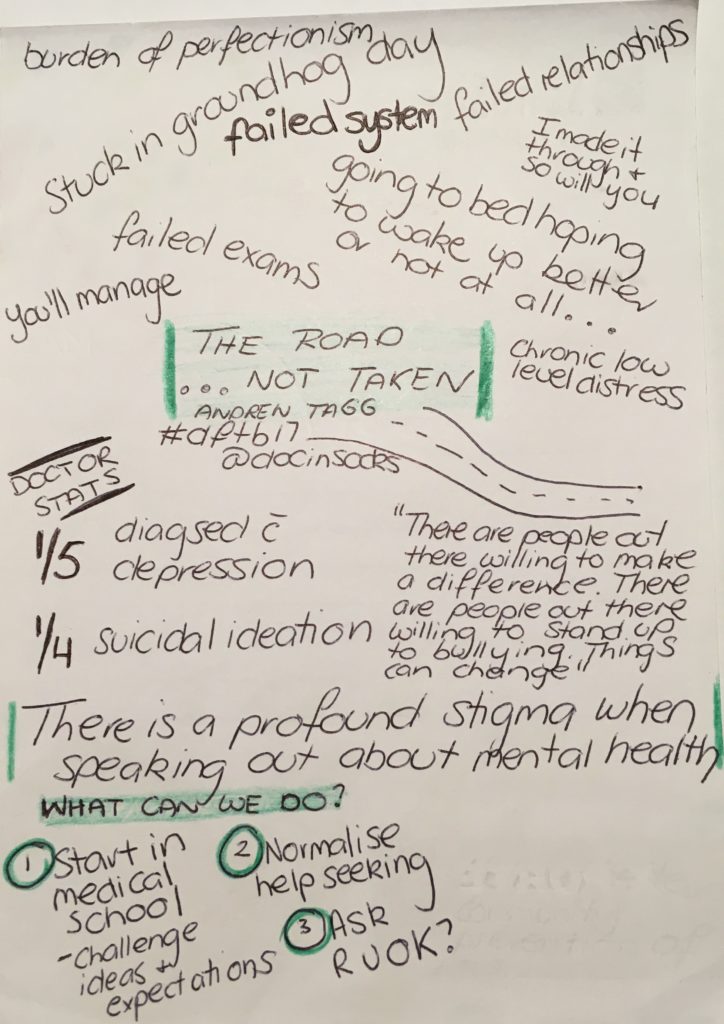 burden of perfectionism
Stuck in groundhog day
failed system
failed relationships
I made it
through +
so will you
going to bed hoping
to wake up better
or not at all...
failed exams
you'll manage
THE ROAD
... NOT TAKEN
ANDREN TAGG
#dftb17
@docinsocks
Chronic low
level distress
DOCTOR
STATS
1/5 diagsed c̄
depression
1/4 suicidal ideation
"There are people out
there willing to make
a difference. There
are people out there
willing to stand up
to bullying. Things
can change"
There is a profound stigma when
speaking out about mental health
WHAT CAN WE DO?
1 Start in
medical
school
- challenge
ideas +
expectations
2 Normalise
help seeking
3 Ask
R U OK?